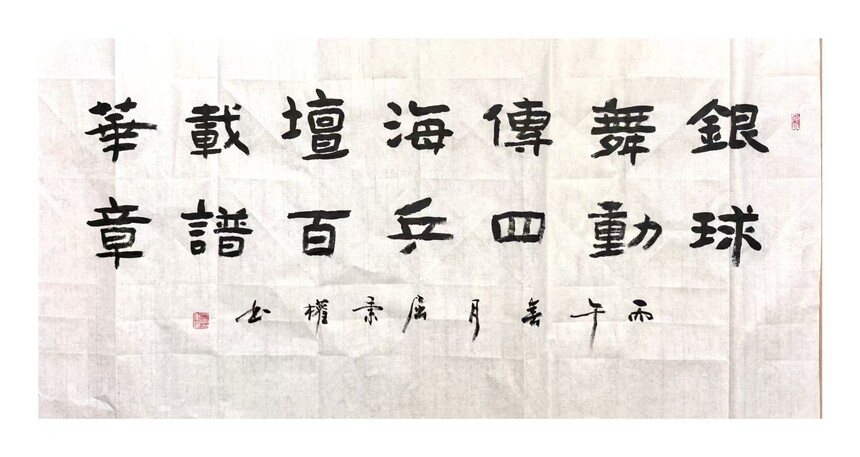 銀球
舞動
傳四
海乒
壇百
載譜
華章
丙午春月屈素權书